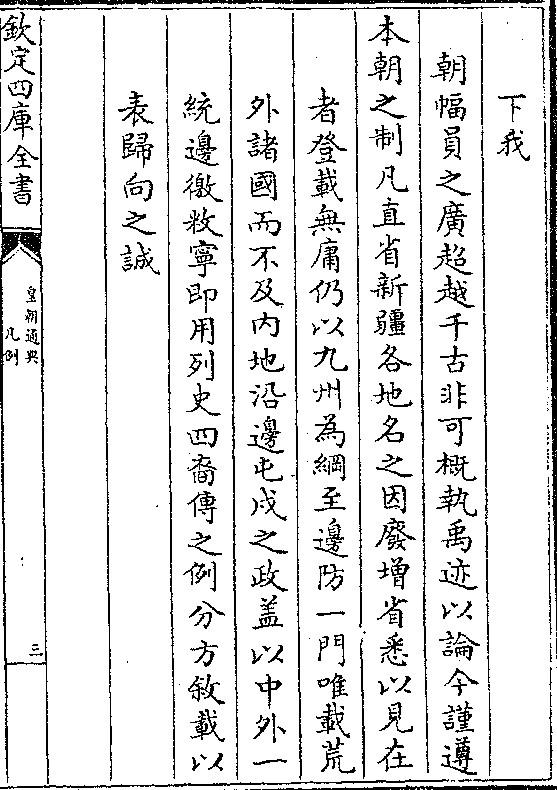 下我
朝幅員之廣超越千古非可概執禹迹以論今謹遵
本朝之制凡直省新疆各地名之因廢增省悉以見在
者登載無庸仍以九州為綱至邊防一門唯載荒
外諸國而不及内地沿邊屯戍之政盖以中外一
統邊徼敉寧即用列史四裔傳之例分方敘載以
表歸向之誠
欽定四庫全書
皇朝通典
凡例
三